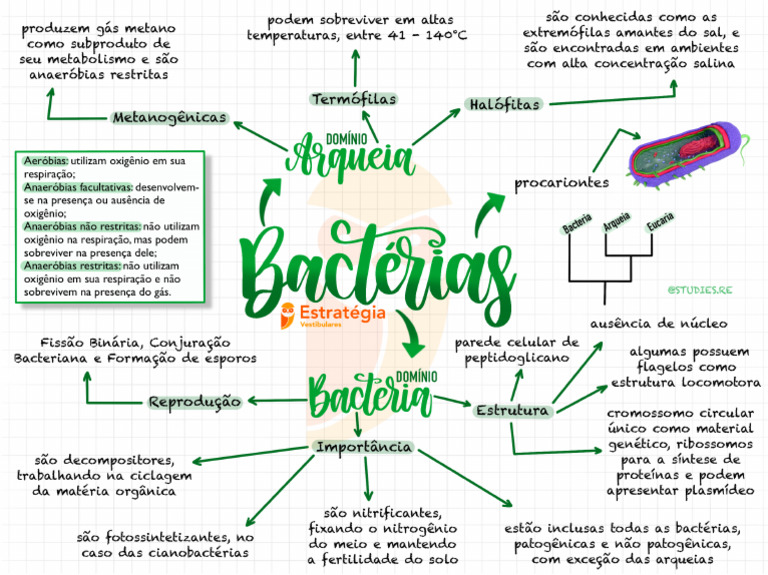 produzem gás metano
como subproduto de
seu metabolismo e são
anaeróbias restritas
podem sobreviver em altas
temperaturas, entre 41 - 140°C
são conhecidas como as
extremófilas amantes do sal, e
são encontradas em ambientes
com alta concentração salina
Metanogênicas
Termófilas
Halófitas
DOMÍNIO
Arqueia
procariontes
Aeróbias: utilizam oxigênio em sua
respiração;
Anaeróbias facultativas: desenvolvem-
se na presença ou ausência de
oxigênio;
Anaeróbias não restritas: não utilizam
oxigênio na respiração, mas podem
sobreviver na presença dele;
Anaeróbias restritas: não utilizam
oxigênio em sua respiração e não
sobrevivem na presença do gás.
Bactérias
Estratégia
Vestibulares
Bacteria
Arqueia
Eucaria
@STUDIES.RE
Fissão Binária, Conjuração
Bacteriana e Formação de esporos
Reprodução
DOMÍNIO
Bacteria
parede celular de
peptidoglicano
Estrutura
ausência de núcleo
algumas possuem
flagelos como
estrutura locomotora
cromossomo circular
único como material
genético, ribossomos
para a síntese de
proteínas e podem
apresentar plasmídeo
Importância
são decompositores,
trabalhando na ciclagem
da matéria orgânica
são fotossintetizantes, no
caso das cianobactérias
são nitrificantes,
fixando o nitrogênio
do meio e mantendo
a fertilidade do solo
estão inclusas todas as bactérias,
patogênicas e não patogênicas,
com exceção das arqueias